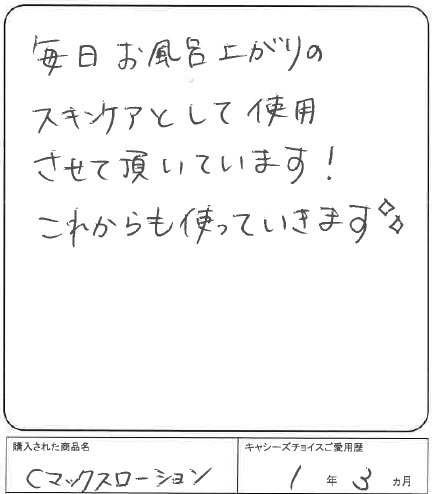 毎日お風呂上がりの
スキンケアとして使用
させて頂いています!
これからも使っていきます
購入された商品名
キャシーズチョイスご愛用歴
Cマックスローション
1年3ヵ月